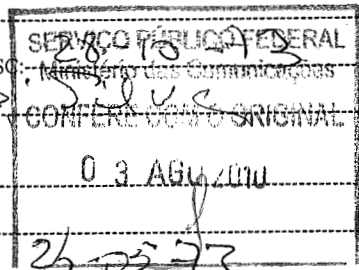 SERVIÇO PÚBLICO FEDERAL
28-10-93
Ministério das Comunicações
Silva
CONFERE COM O ORIGINAL
03 AGO 2010